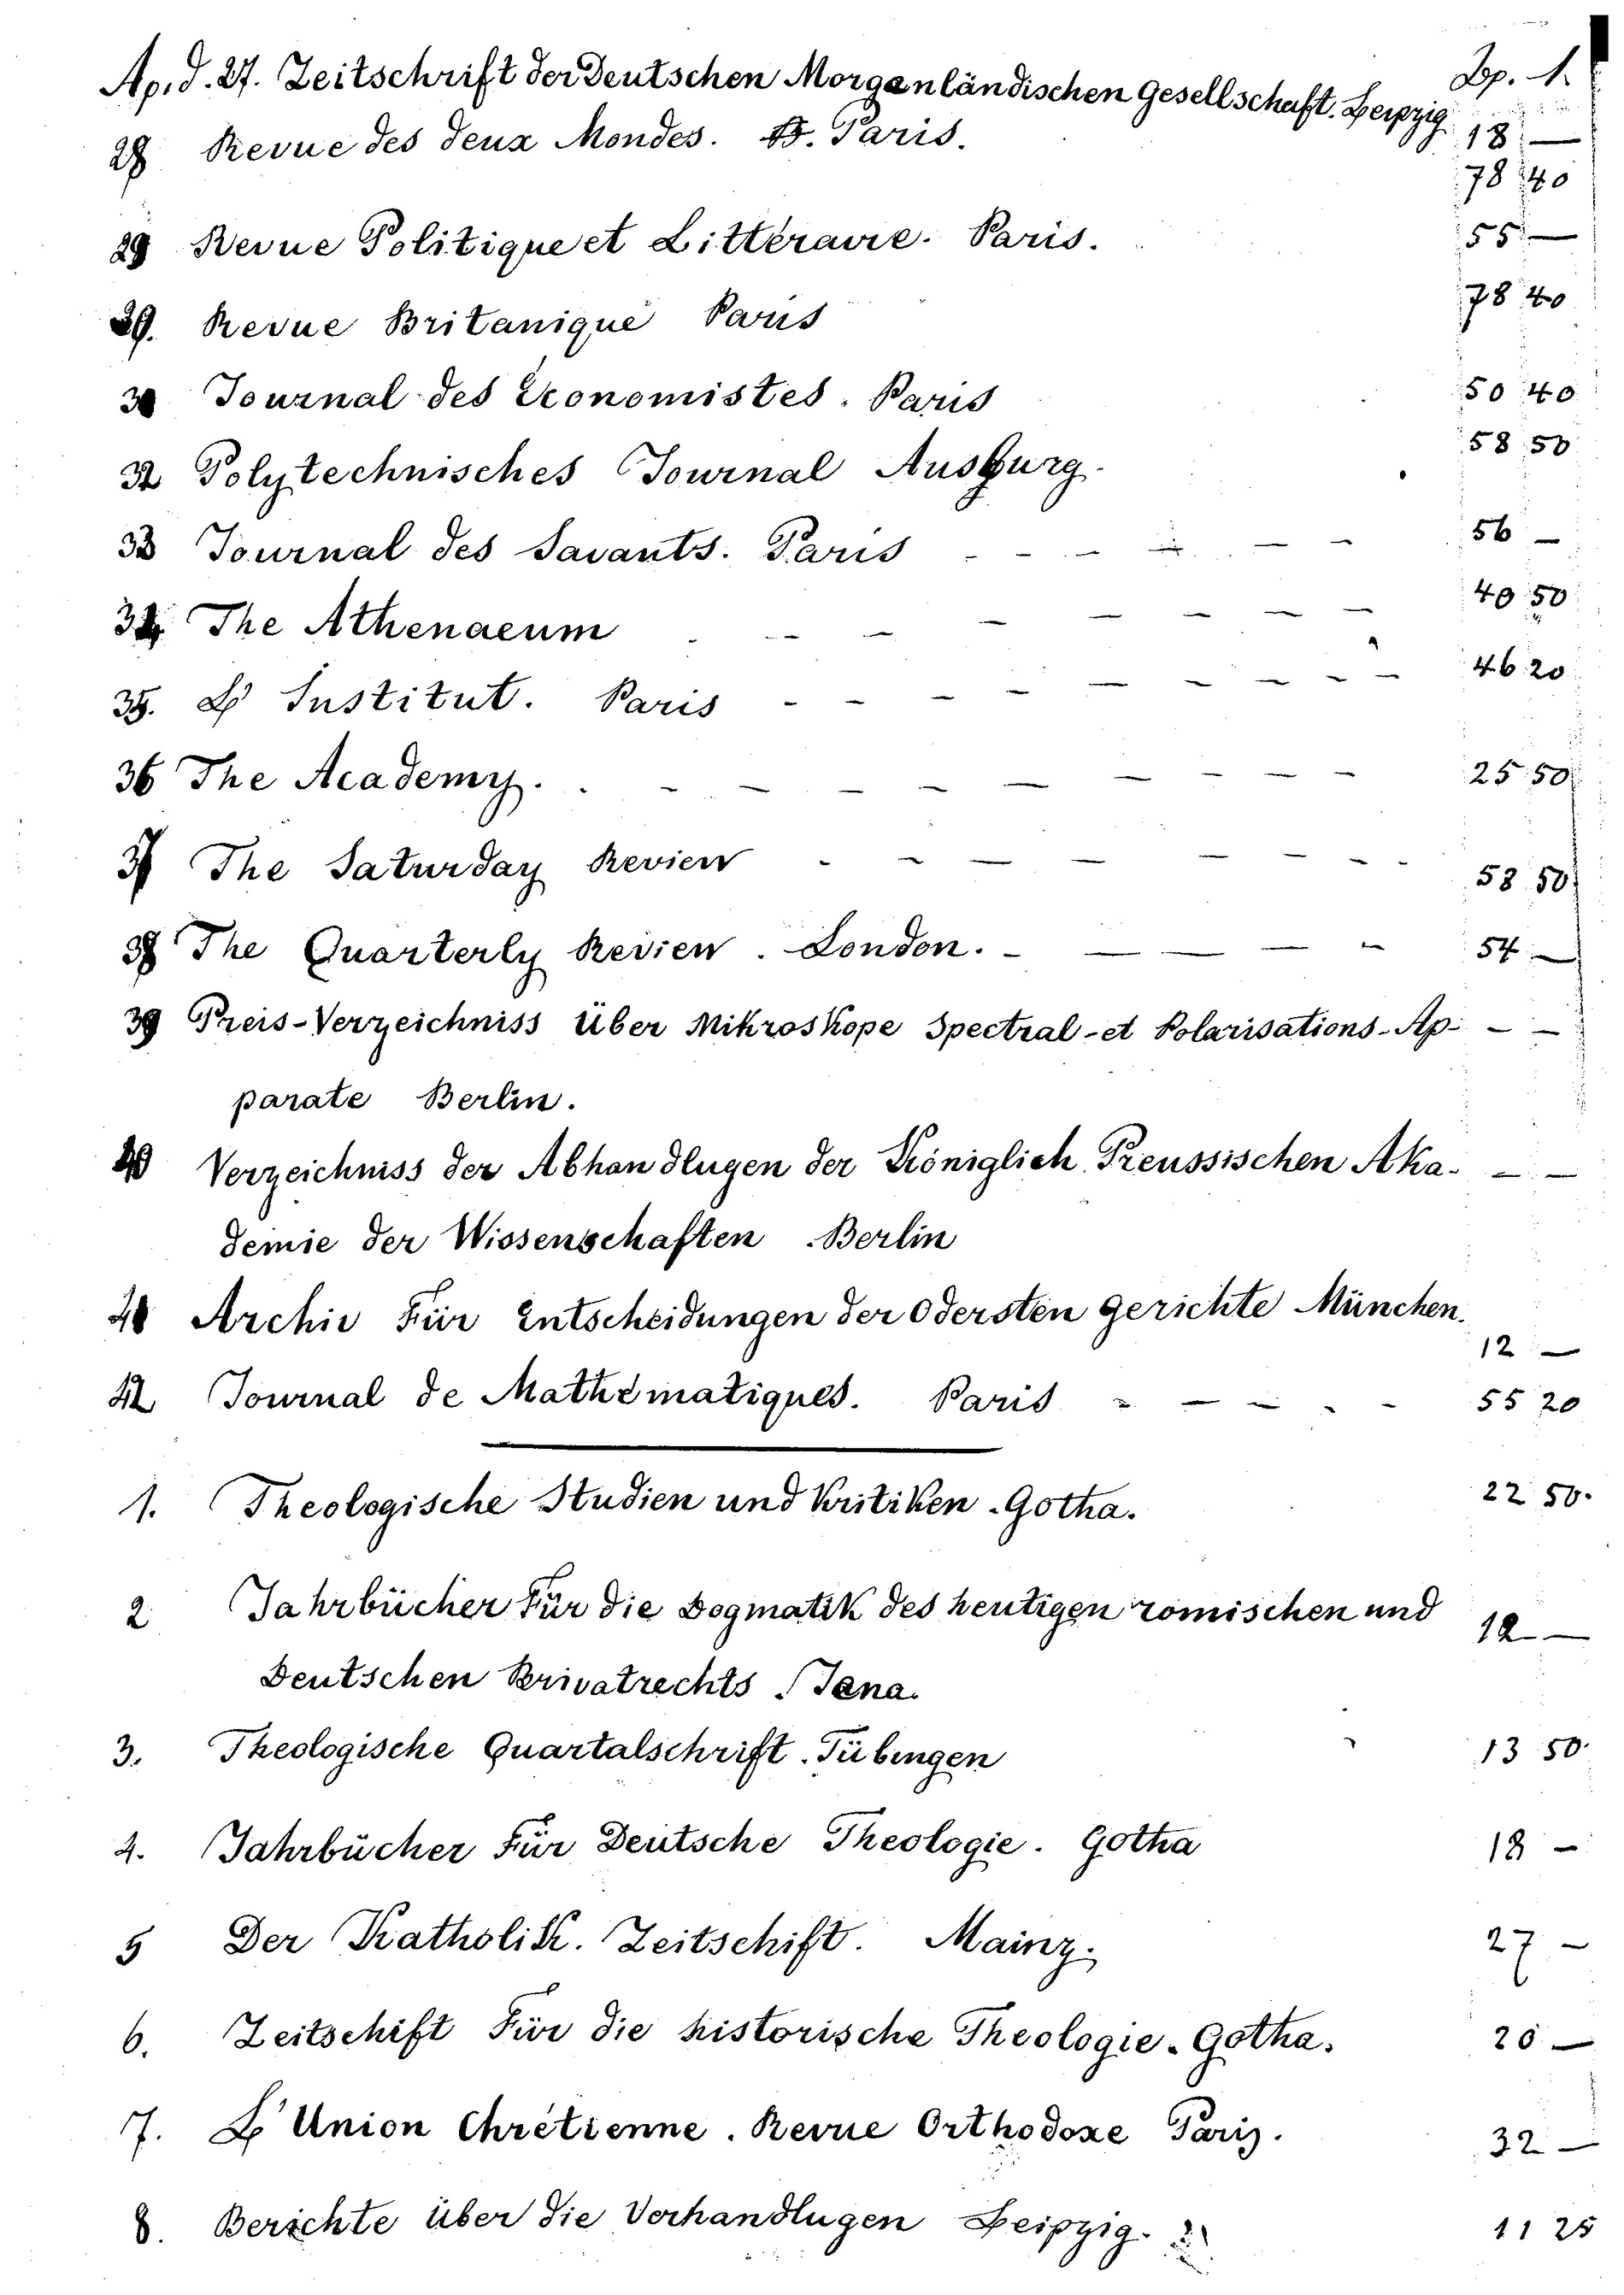 Ap. d. 27. Zeitschrift der Deutschen Morganländischen Gesellschaft. Leipzig 18 —
Др. Λ.
28 Revue des deux Mondes. Paris. 78 40
29 Revue Politique et Littéravie. Paris. 55 —
29. Revue Britanique Paris 78 40
30 Journal des Economistes. Paris 50 40
32 Polytechnisches Journal Ausburg. 58 50
33 Journal des Savants. Paris - - - - - - 56 —
34 The Athenaeum - - - - - - 40 50
35. L' Institut. Paris - - - - - - - - - 46 20
36 The Academy. - - - - - - - - - 25 50
37 The Saturday Review - - - - - - - - 58 50
38 The Quarterly Review. London. - - - - - 54 —
39 Preis-Verzeichniss über Mikroskope Spectral-et Polarisations-Ap- — —
parate Berlin.
40 Verzeichniss der Abhandlugen der Königlich Preussischen Aka- — —
demie der Wissenschaften Berlin
41 Archiv Für Entscheidungen der Odersten Gerichte München. 12 —
42 Journal de Mathématiques. Paris - - - - - 55 20
1. Theologische Studien und Kritiken - Gotha. 22 50.
2 Jahrbücher Für die Dogmatik des heutigen romischen und 12 —
Deutschen Privatrechts. Jena.
3. Theologische Quartalschrift. Tübingen 13 50.
4. Jahrbücher Für Deutsche Theologie. Gotha 18 —
5 Der Katholik. Zeitschift. Mainz. 27 —
6. Zeitschift Für die historische Theologie - Gotha. 20 —
7. L' Union Chrétienne. Revue Orthodoxe Paris. 32 —
8. Berichte über die Verhandlugen Leipzig. 11 25